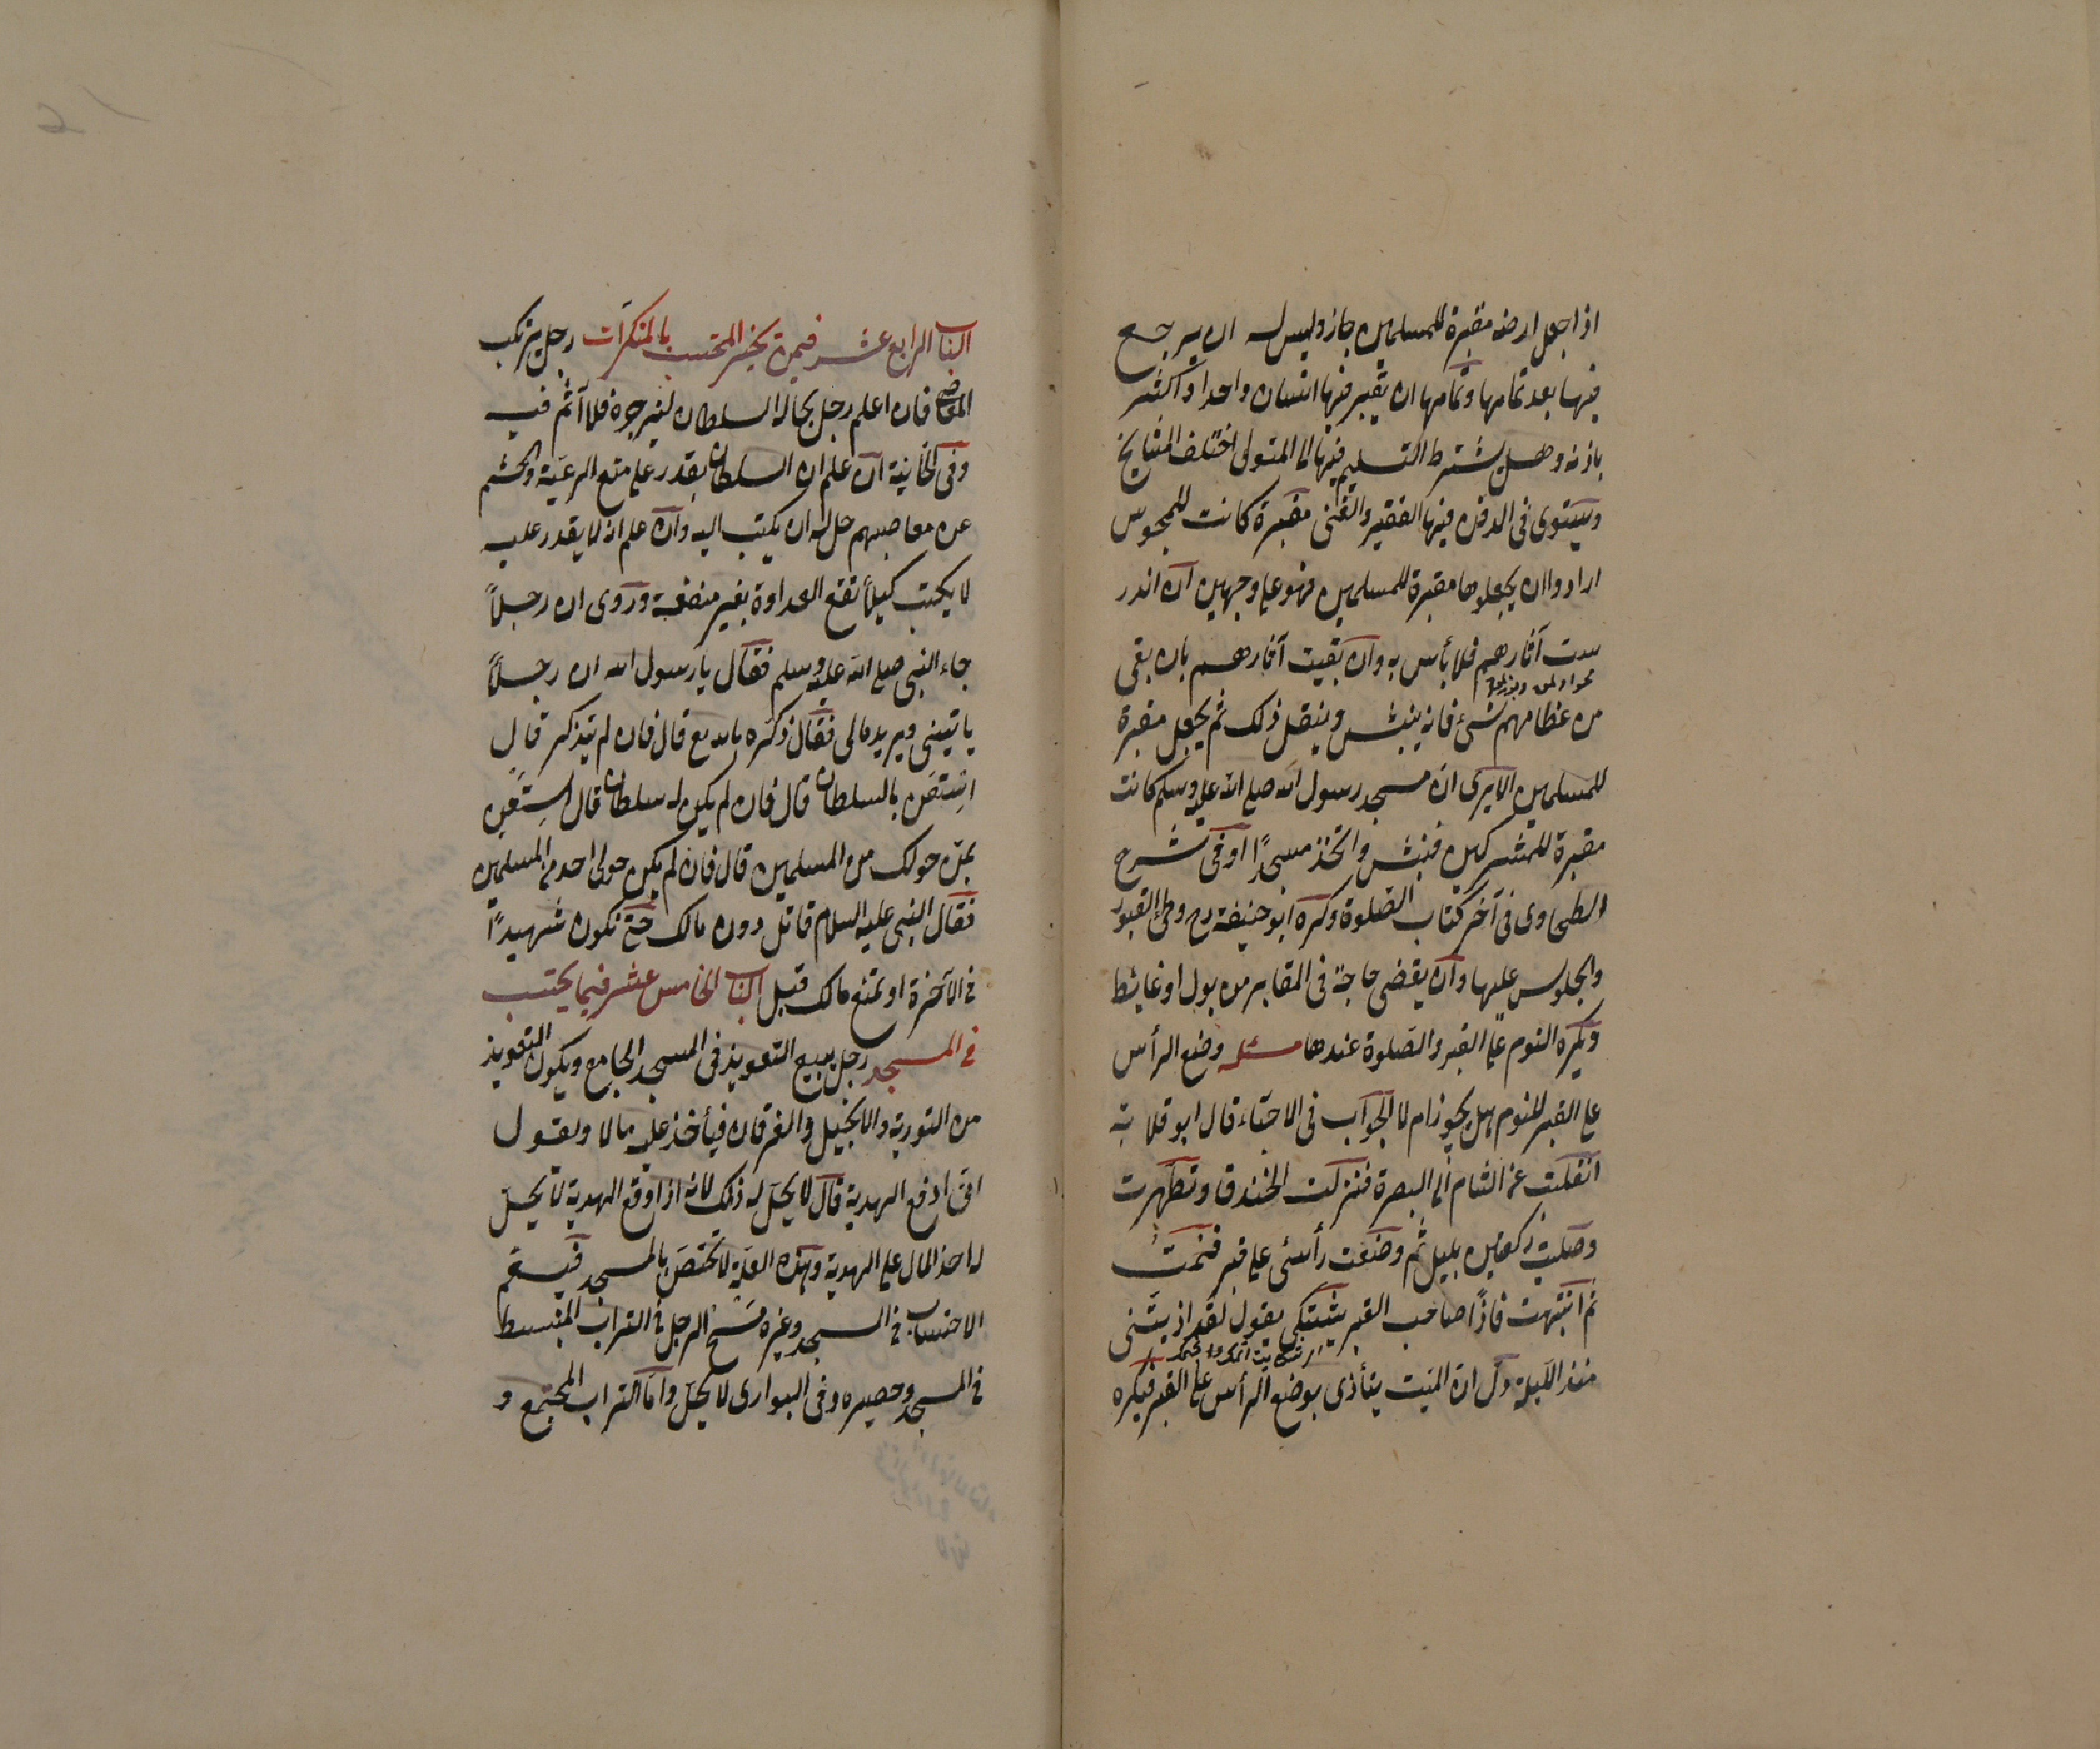 اذا جعل ارضه مقبرة للمسلمين جاز وليس له ان يرجع
فيها بعد تمامها وتمامها ان يقبر فيها انسان واحد او اكثر
باذنه وهل يشترط التسليم فيها الى المتولى اختلف المشايخ
ويستوى فى الدفن فيها الفقير والغنى مقبرة كانت للمجوس
ارادوا ان يجعلوها مقبرة للمسلمين فهو على وجهين ان اندر
ست آثارهم فلا بأس به وان بقيت آثارهم بان بقى
من عظامهم شئ فانه ينبش وينقل ذلك ثم يجعل مقبرة
للمسلمين الا يرى ان مسجد رسول الله صلى الله عليه وسلم كانت
مقبرة للمشركين فنبش واتخذ مسجدًا او فى شرح
الطحاوى فى آخر كتاب الصلوة وكره ابو حنيفة رح وطئ القبور
والجلوس عليها وان يقضى حاجة فى المقابر من بول او غائط
ويكره النوم على القبر والصلوة عندها مسئلة وضع الرأس
على القبر للنوم هل يجوز ام لا الجواب فى الاحياء قال ابو قلابة
انقلبت من الشام الى البصرة فنزلت الخندق وتطهرت
وصليت ركعتين بليل ثم وضعت رأسى على قبر فنمت
ثم انتبهت فاذًا صاحب القبر يشتكى يقول لقد اذيتنى
منذ الليلة دل ان الميت يتأذى بوضع الرأس على القبر فيكره
الباب الرابع عشر فيمن يخبر المحتسب بالمنكرات رجل يرتكب
المعاصى فان اعلم رجل بحاله السلطان ليزجره فلا آثم فيه
وفى الخانية ان علم ان السلطان يقدر على منع الرعية والحشم
عن معاصيهم حل له ان يكتب اليه وان علم انه لا يقدر عليه
لا يكتب كيلا تقع العداوة بغير منفعة وروى ان رجلاً
جاء النبى صلى الله عليه وسلم فقال يا رسول الله ان رجلاً
ياتينى ويريد مالى فقال ذكره بالله تع قال فان لم يتذكر قال
استعن بالسلطان قال فان لم يكن له سلطان قال استعين
بمن حولك من المسلمين قال فان لم يكن حولى احد من المسلمين
فقال النبى عليه السلام قاتل دون مالك حتى تكون شهيدًا
فى الآخرة او تمنع مالك قبل الباب الخامس عشر فيما يحتسب
فى المسجد رجل يبيع التعويذ فى المسجد الجامع ويكون التعويذ
من التورية والانجيل والفرقان فيأخذ عليه مالا ويقول
انى ادفع الهدية قال لا يحل له ذلك لانه اذا اوقع الهدية لا يحل
له اخذ المال على الهدية وهذه العلة لا تختص بالمسجد فيعم
الاحتساب فى المسجد وغيره مسح الرجل فى التراب المنبسط
فى المسجد وحصيره وفى البوارى لا يحل واما التراب المجتمع و